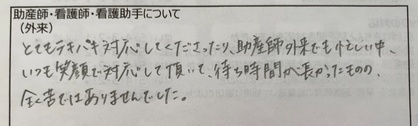 助産師・看護師・看護助手について
(外来)
とてもテキパキ対応してくださったり、助産師外来でも忙しい中、
いつも笑顔で対応して頂いて、待ち時間が長かったものの、
全く苦ではありませんでした。